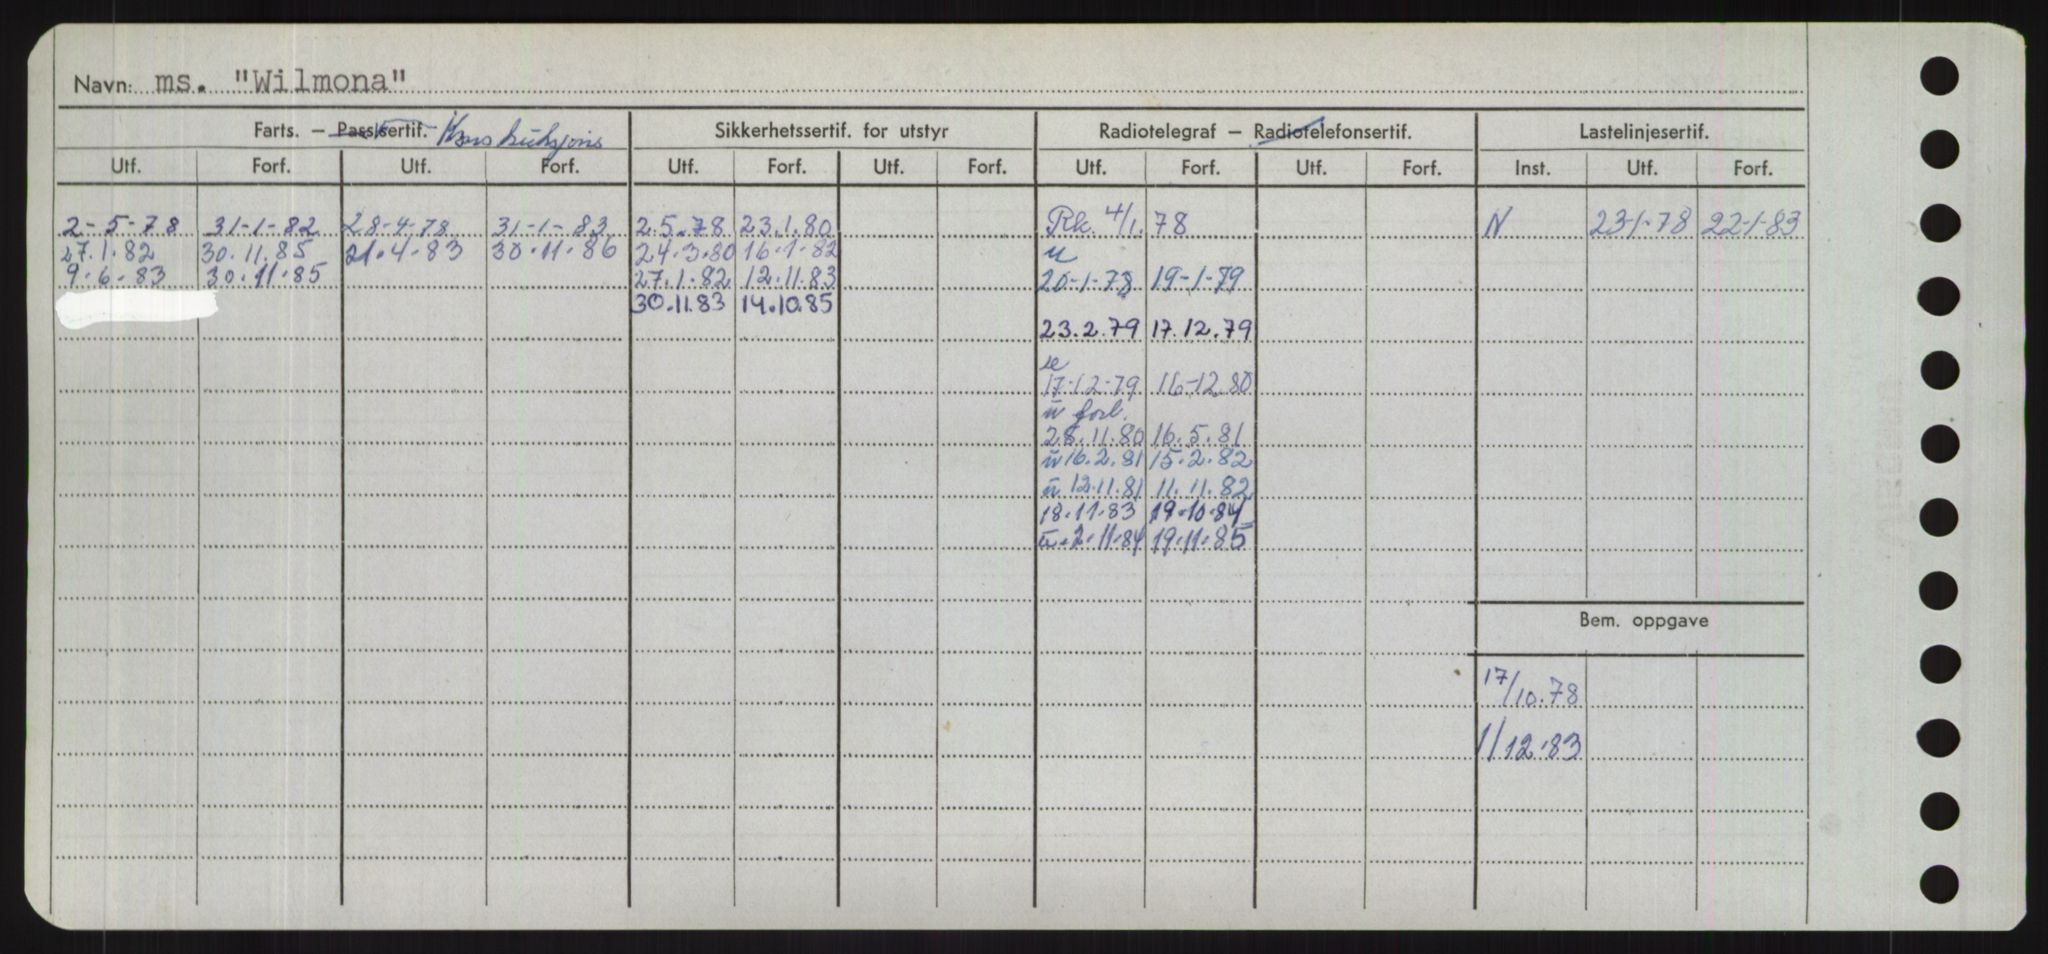 Navn: ms. "Wilmona"
Farts. — Passasjersertif. Konstruksjons Sikkerhetssertif. for utstyr Radiotelegraf — Radiotelefonsertif. Lastelinjesertif.
Utf. Forf. Utf. Forf. Utf. Forf. Utf. Forf. Utf. Forf. Utf. Forf. Inst. Utf. Forf.
2-5-78 31-1-82 28-4-78 31-1-83 2.5.78 23.1.80 Rk. 4/1.78 N 23-1-78 22-1-83
27.1.82 30.11.85 21.4.83 30.11.86 24.3.80 16.1.82 u
9.6.83 30.11.85 27.1.82 12.11.83 20-1-78 19-1-79
30.11.83 14.10.85
23.2.79 17.12.79
u
17-12-79 16-12.80
u forl.
28.11.80 16.5.81
u 16.2.81 15.2.82
u 12.11.81 11.11.82
18.11.83 19.10.84
u. 2.11.84 19.11.85
Bem. oppgave
17/10.78
1/12.83